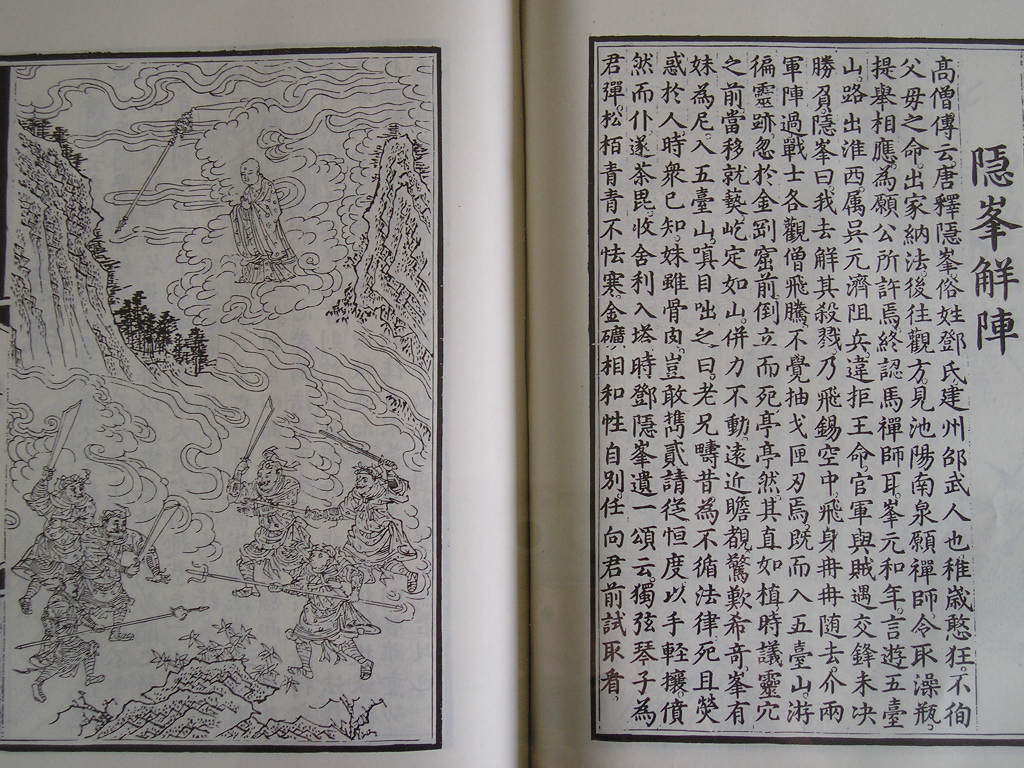 隱峯解陣
高僧傳云唐釋隱峯俗姓鄧氏建州邵武人也稚歲憨狂。不徇
父母之命。出家納法。後往觀方。見池陽南泉願禪師。令取澡瓶。
提舉相應。為願公所許焉。終認馬禪師耳。峯元和年。言遊五臺
山。路出淮西。属吳元濟阻兵違拒王命。官軍與賊遇交鋒未决
勝負。隱峯曰。我去解其殺戮。乃飛錫空中。飛身冉冉随去。介兩
軍陣過。戰士各觀僧飛騰。不覺抽戈匣刃焉。既而入五臺山。游
徧靈跡。忽於金剛窟前。倒立而死。亭亭然。其直如植。時議靈穴
之前當移就爇。屹定如山。併力不動。遠近瞻覩。驚歎希奇。峯有
妹為尼。入五臺山。嗔目咄之曰。老兄疇昔為不循法律。死且熒
惑於人。時衆已知。妹雖骨肉。豈敢携貳。請從恒度。以手輕攘。僨
然而仆。遂荼毘。收舍利入塔。時鄧隱峯遺一頌云。獨弦琴子為
君彈。松栢青青不怯寒。金礦相和性自別。任向君前試取看。